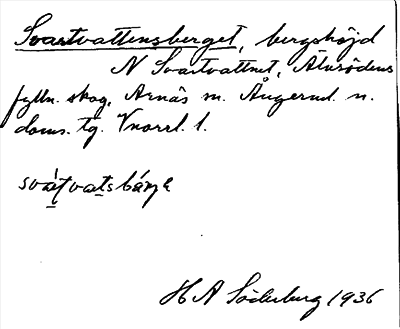 Svartvattensberget, bergshöjd
N Svartvattnet, Älvsödens
fylln. skog, Arnäs sn. Ångerml. n.
doms. tg. Vnorrl. l.
H A Söderberg 1936